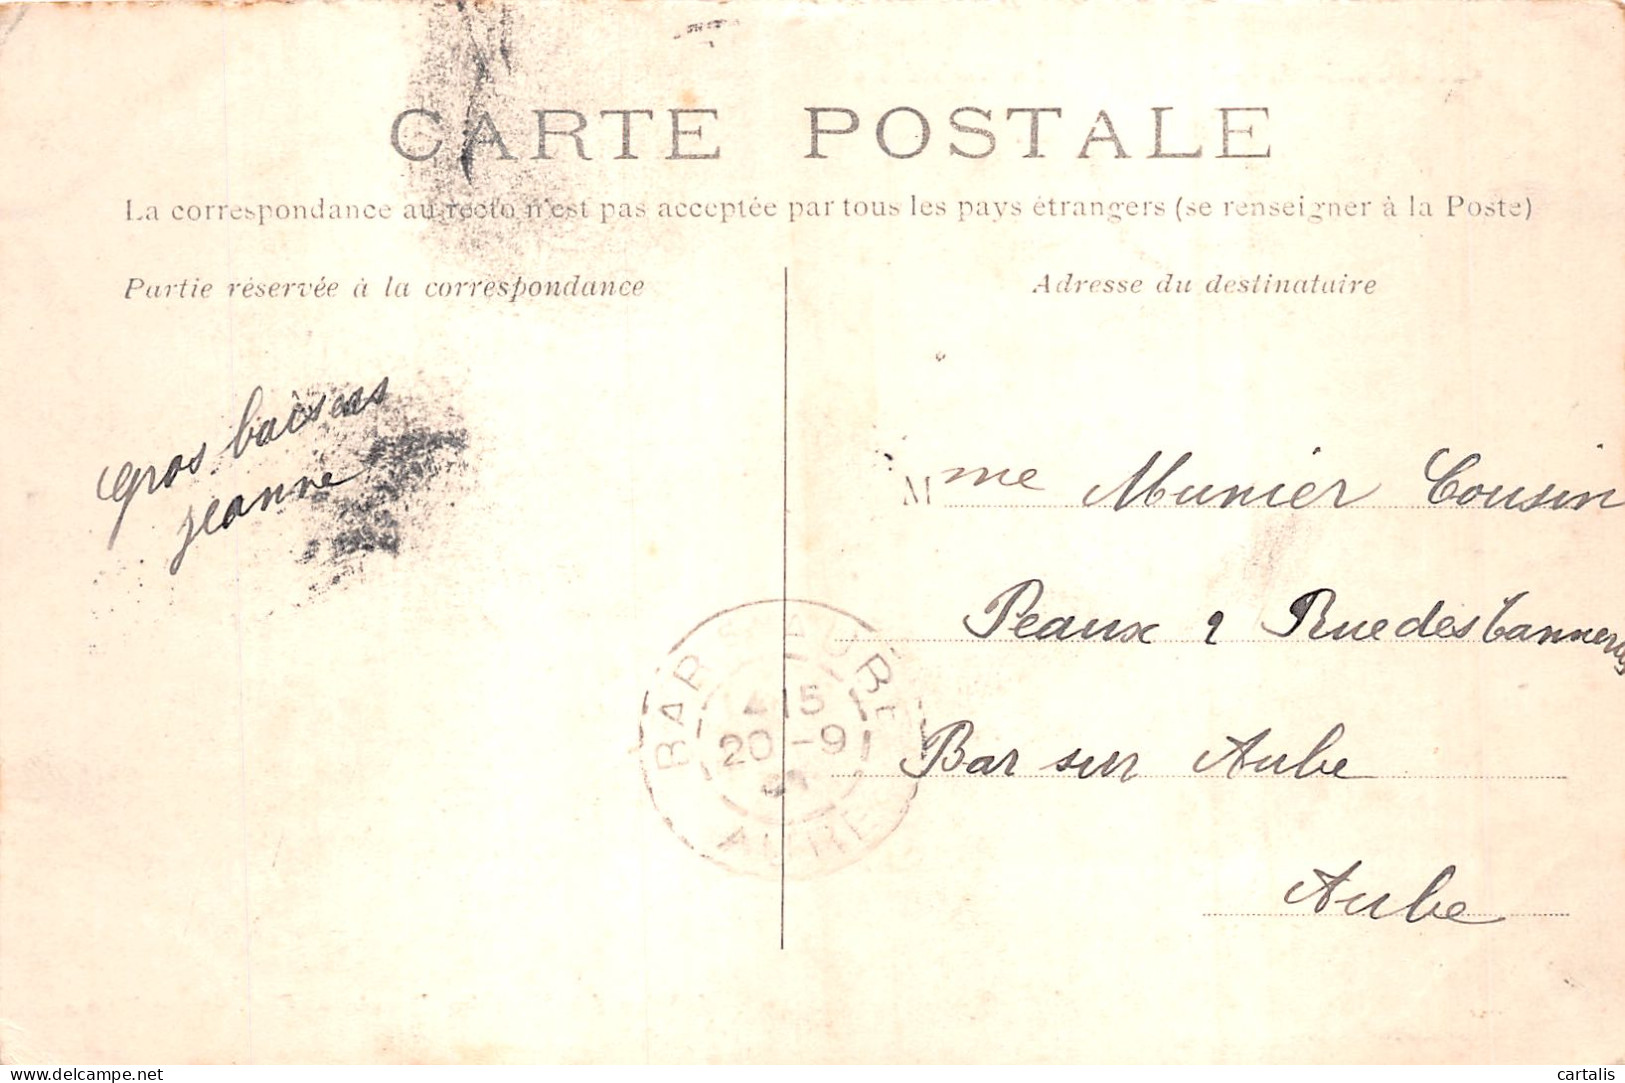 CARTE POSTALE
La correspondance au recto n'est pas acceptée par tous les pays étrangers (se renseigner à la Poste)
Partie réservée à la correspondance
Adresse du destinataire
gros baisers
jeanne
Mme Munier Cousin
Peaux 2 Rue des Tanneries
Bar sur Aube
Aube
BAR S AUBE
4 15
20 -9
AUBE
delcampe.net
cartalis